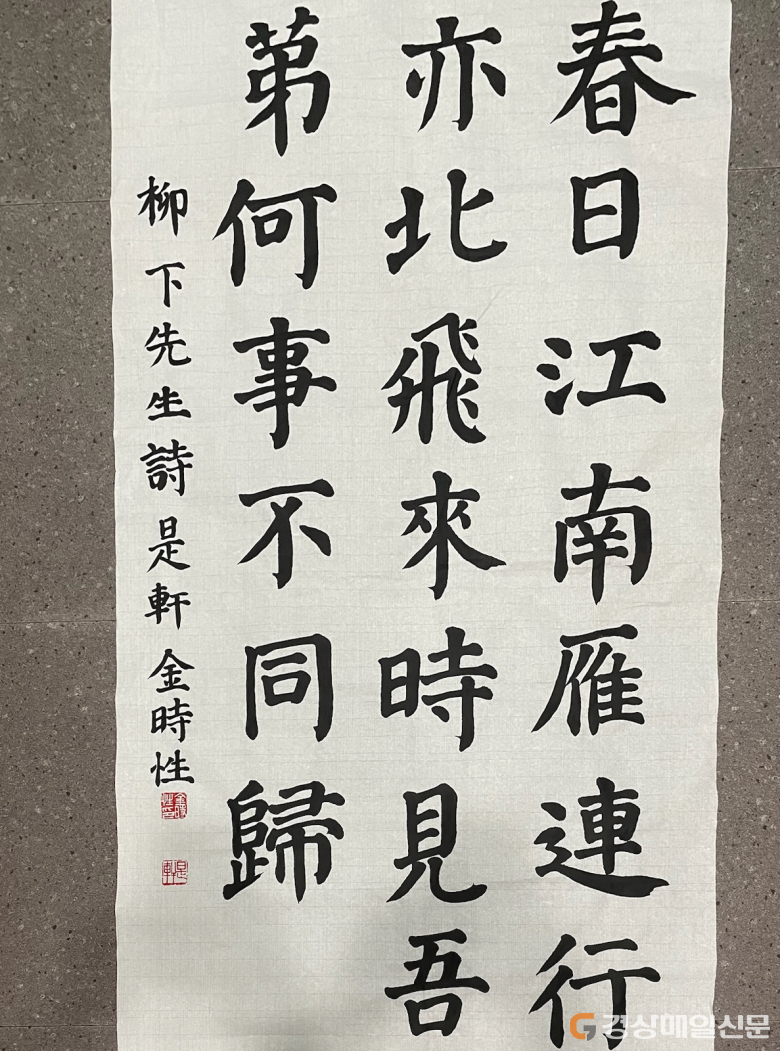 春日江南雁連行
亦北飛來時見吾
苐何事不同歸
柳下先生詩 是軒 金時性
경상매일신문